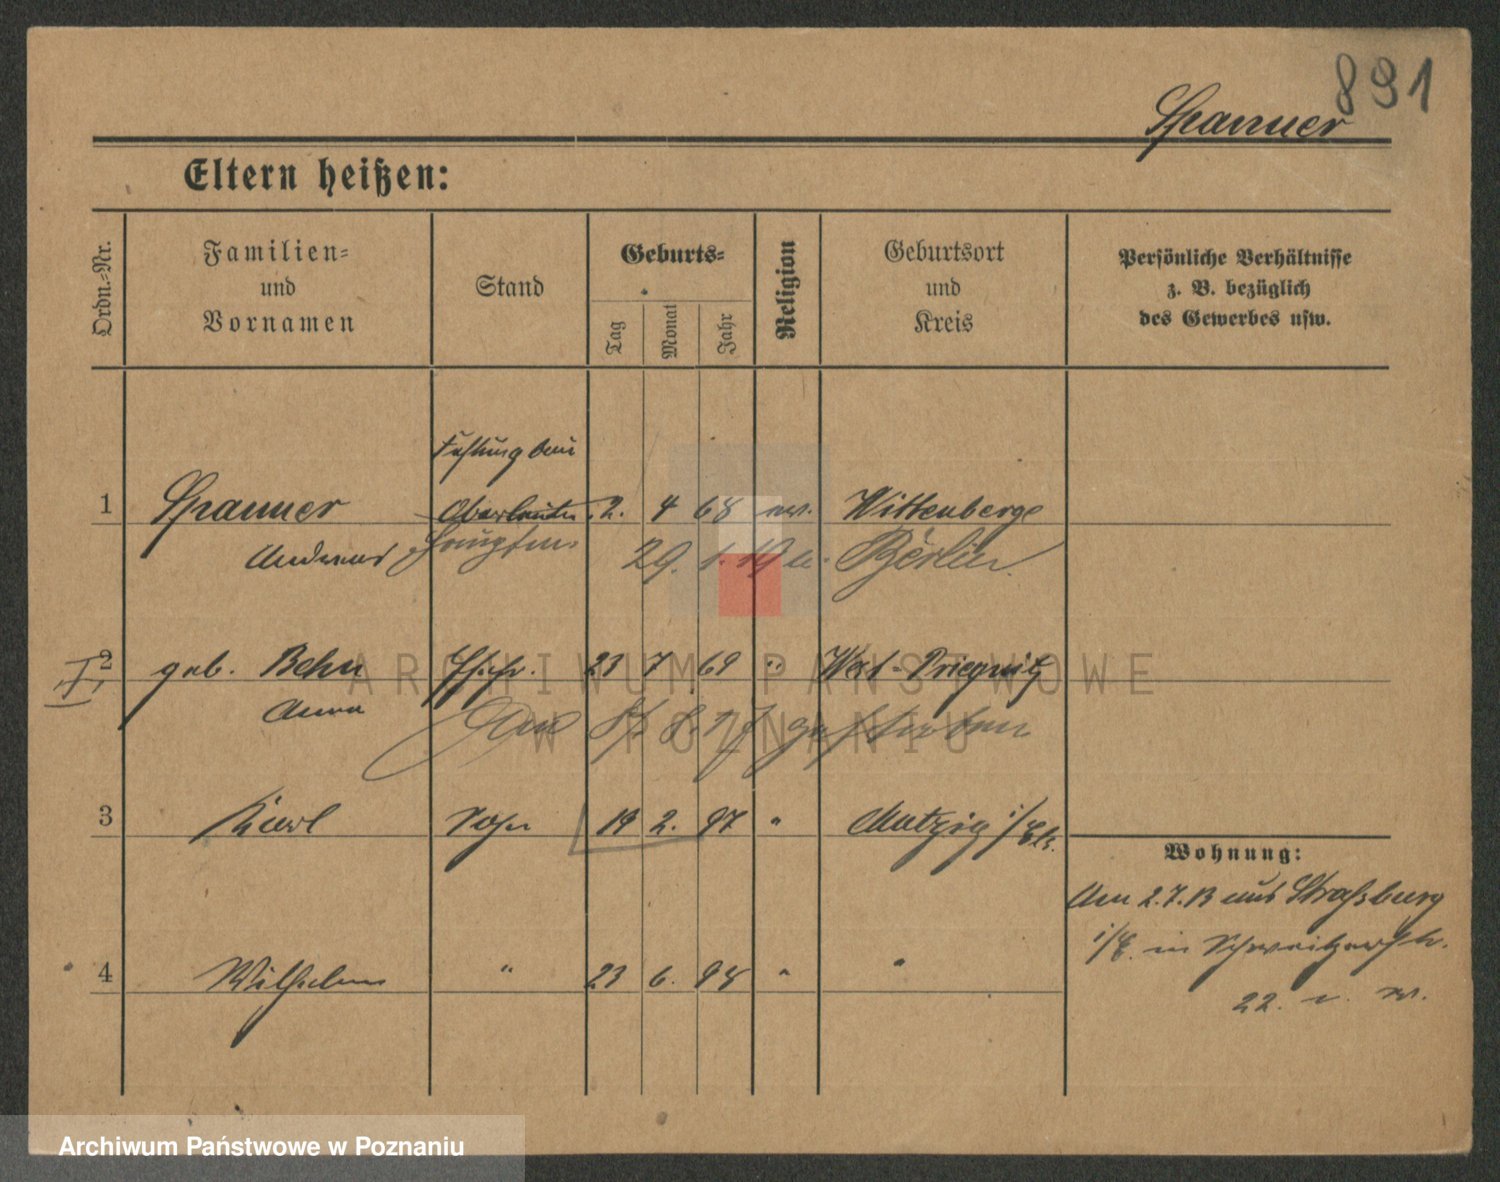 891
Spanner
Eltern heißen:
Ordn.-Nr.
Familien- und Vornamen
Stand
Geburts-
Tag
Monat
Jahr
Religion
Geburtsort und Kreis
Persönliche Verhältnisse z. B. bezüglich des Gewerbes usw.
Festungsbau
1 Spanner Oberleutn. 2. 4 68 ev. Wittenberge
Andreas 29. 1. 19 Berlin
2 geb. Behn Ehefr. 23 7 69 " West-Priegnitz
Anna
gestorben
3 Karl Sohn 19 2. 97 " Mutzig i/Els.
Wohnung:
Am 2.7.13 aus Straßburg
i/E. in
4 Wilhelm " 23 6. 98 " "
22.
ARCHIWUM PAŃSTWOWE
W POZNANIU
Archiwum Państwowe w Poznaniu